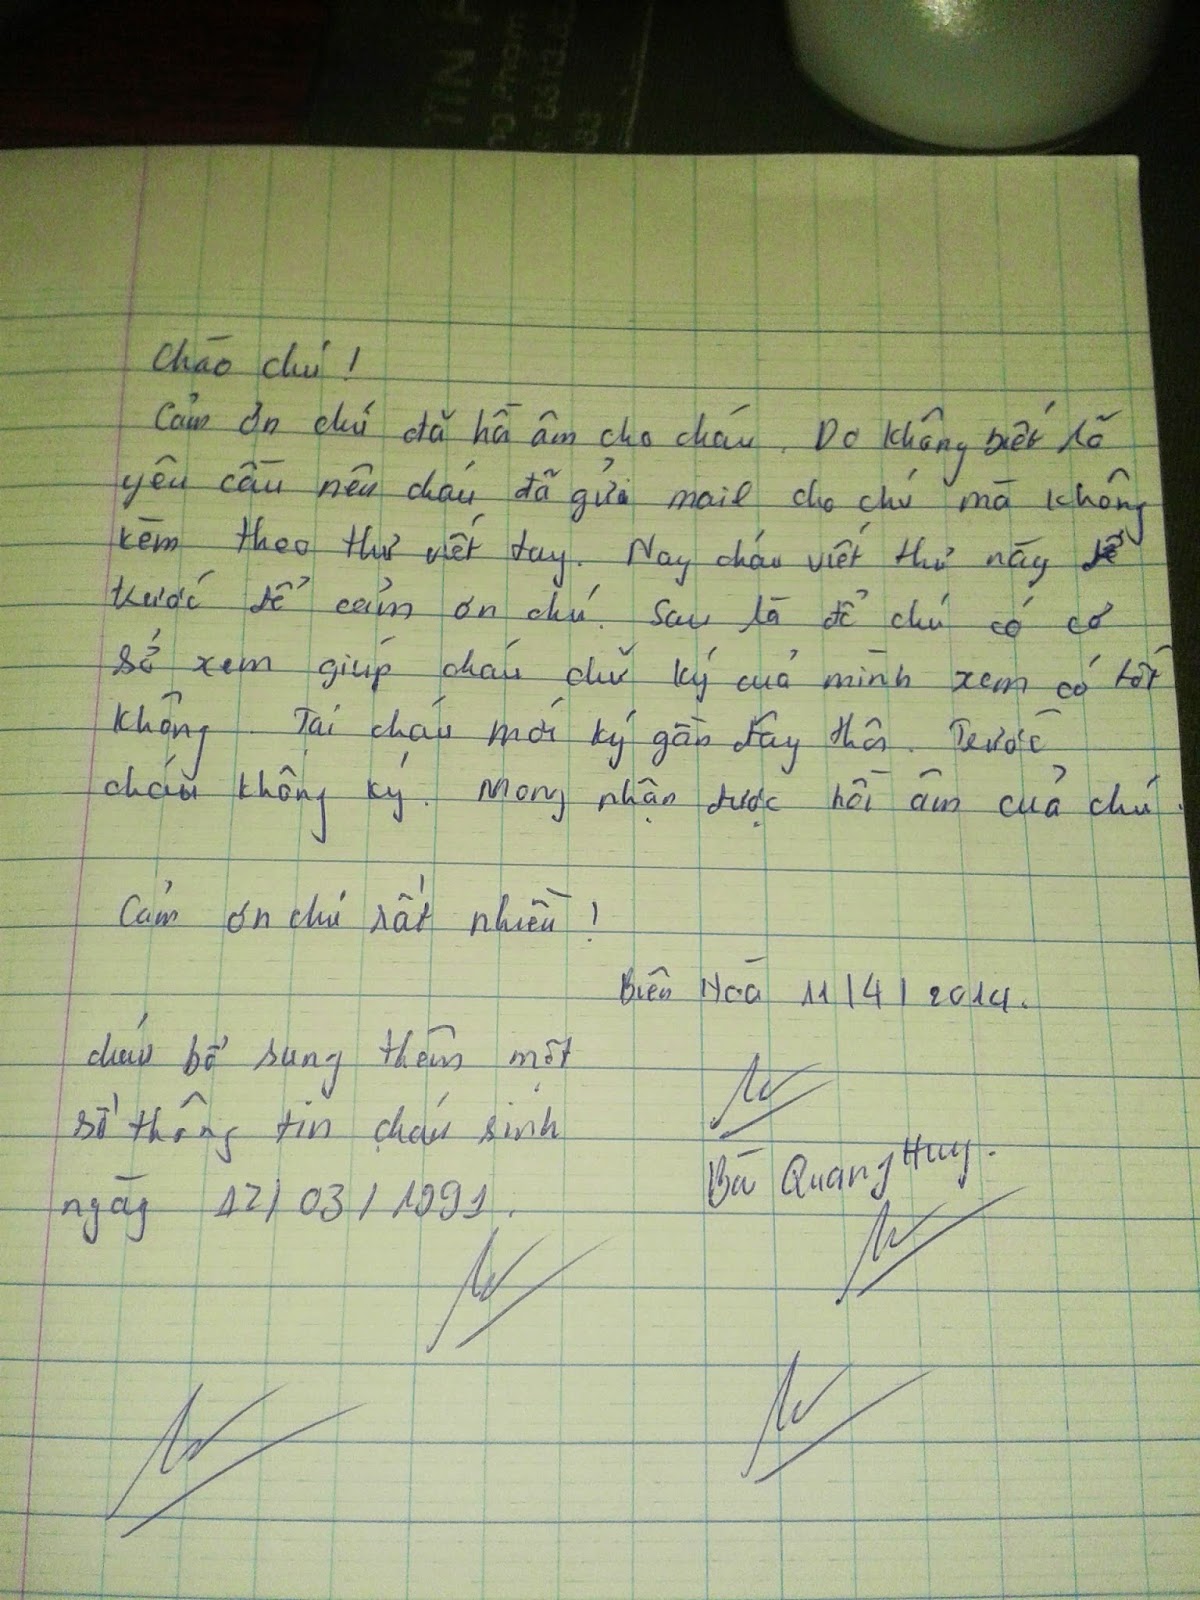 TIN H
Chào chú !
Cảm ơn chú đã hồ âm cho cháu. Do không biết rõ
yêu cầu nên cháu đã gửi mail cho chú mà không
kèm theo thư viết tay. Nay cháu viết thư này
trước để cảm ơn chú. Sau là để chú có cơ
sở xem giúp cháu chữ ký của mình xem có tốt
không. Tại cháu mới ký gần đây thôi. Trước
cháu không ký. Mong nhận được hồi âm của chú.
Cảm ơn chú rất nhiều !
Biên Hoà 11/4/2014.
cháu bổ sung thêm một
số thông tin cháu sinh
ngày 12/03/1991.
Bá Quang Huy.